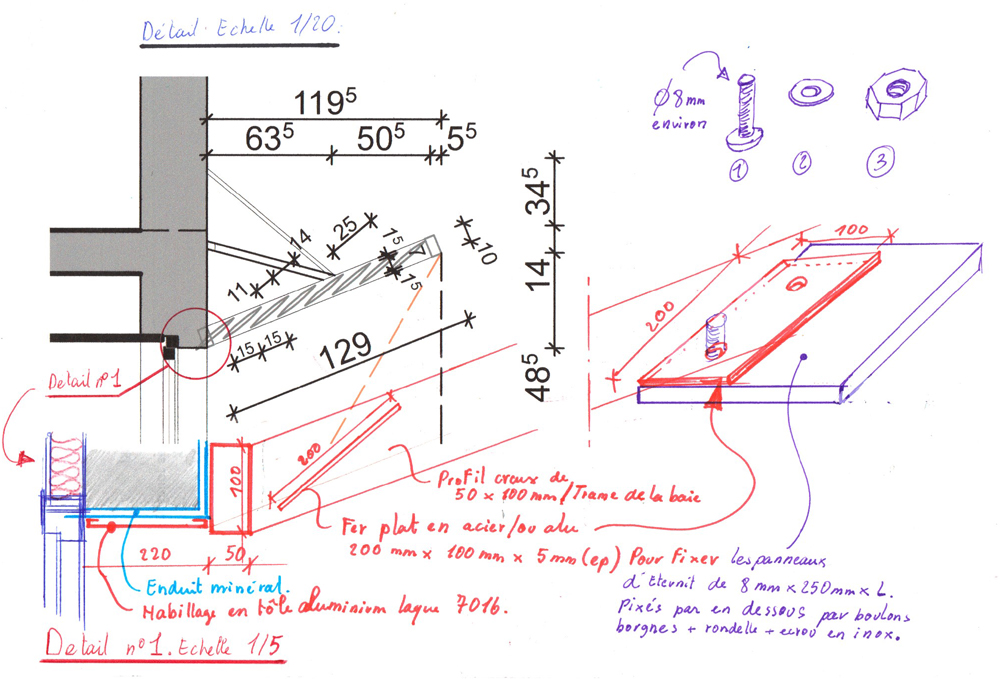 Détail. Echelle 1/20.
119⁵
63⁵ 50⁵ 5⁵
Ø8mm
environ
1 2 3
34⁵
14
48⁵
25
14
11
1⁵
1⁵
10
15 15
129
100
200
Detail n°1
200
100
220 50
Profil creux de
50 x 100 mm / Trame de la baie
Fer plat en acier/ou alu
200 mm x 100 mm x 5 mm (ep) Pour Fixer les panneaux
d'Eternit de 8 mm x 250 mm x L.
Fixés par en dessous par boulons
borgnes + rondelle + ecrou en inox.
Enduit minéral.
Habillage en tôle aluminium laqué 7016.
Detail n°1. Echelle 1/5